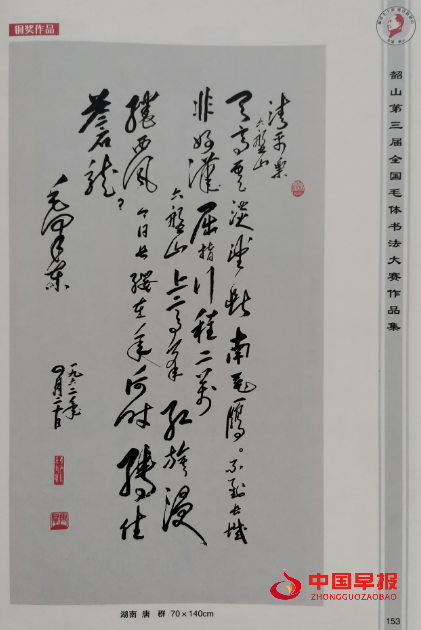 铜奖作品
清平樂
六盤山
天高雲淡望断南飛雁。不到长城
非好漢屈指行程二萬
六盤山上高峯红旗漫
捲西风今日长缨在手何时缚住
蒼龙?
毛泽东
一九六二年
四月二十日
湖南 唐 群 70×140cm
韶山第三届全国毛体书法大赛作品集
153
中国早报
ZHONGGUOZAOBAO